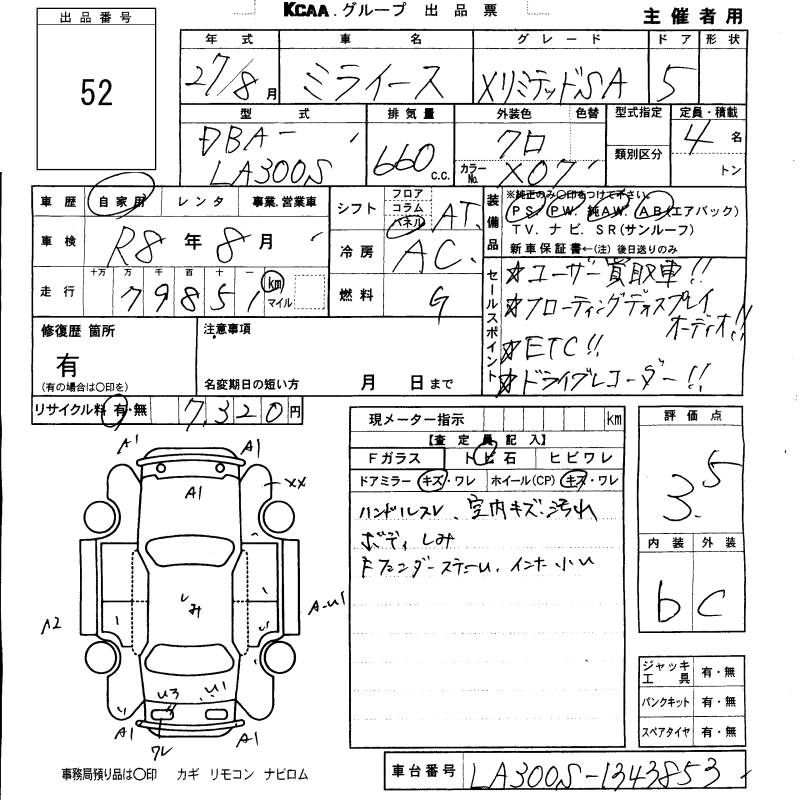 KCAA.グループ 出品票
主催者用
出品番号
52
年式 車名 グレード ドア 形状
27/8月 ミライース XリミテッドSA 5
型式 排気量 外装色 色替 型式指定 定員・積載
DBA-
LA300S
660 C.C.
クロ
カラーNo. X07
類別区分
4 名
トン
車歴 自家用 レンタ 事業.営業車
車検 R8年8月
走行 十万 万 千 百 十 一
79851 km
マイル
シフト フロア コラム パネル AT.
冷房 AC.
燃料 G
装備品
※純正のみ○印をつけて下さい。
PS. PW. 純AW. AB(エアバック)
TV. ナビ. SR(サンルーフ)
新車保証書←(注) 後日送りのみ
セールスポイント
☆ユーザー買取車!!
☆フローティングディスプレイ
オーディオ!!
☆ETC!!
☆ドライブレコーダー!!
修復歴 箇所
有
(有の場合は○印を)
注意事項
名変期日の短い方 月 日まで
リサイクル料 有・無 7,320円
現メーター指示 km
【査定員記入】
Fガラス トビ石 ヒビワレ
ドアミラー キズ・ワレ ホイール(CP) キズ・ワレ
ハンドルスレ、室内キズ・汚れ
ボディしみ
Fフェンダーステー小、インナー小い
評価点
3.5
内装 外装
b C
ジャッキ工具 有・無
パンクキット 有・無
スペアタイヤ 有・無
A1 A1
A1
XX
しみ
A2
A-U1
U3 U1
A1 A1
ワレ
事務局預り品は○印 カギ リモコン ナビロム
車台番号 LA300S-1343853